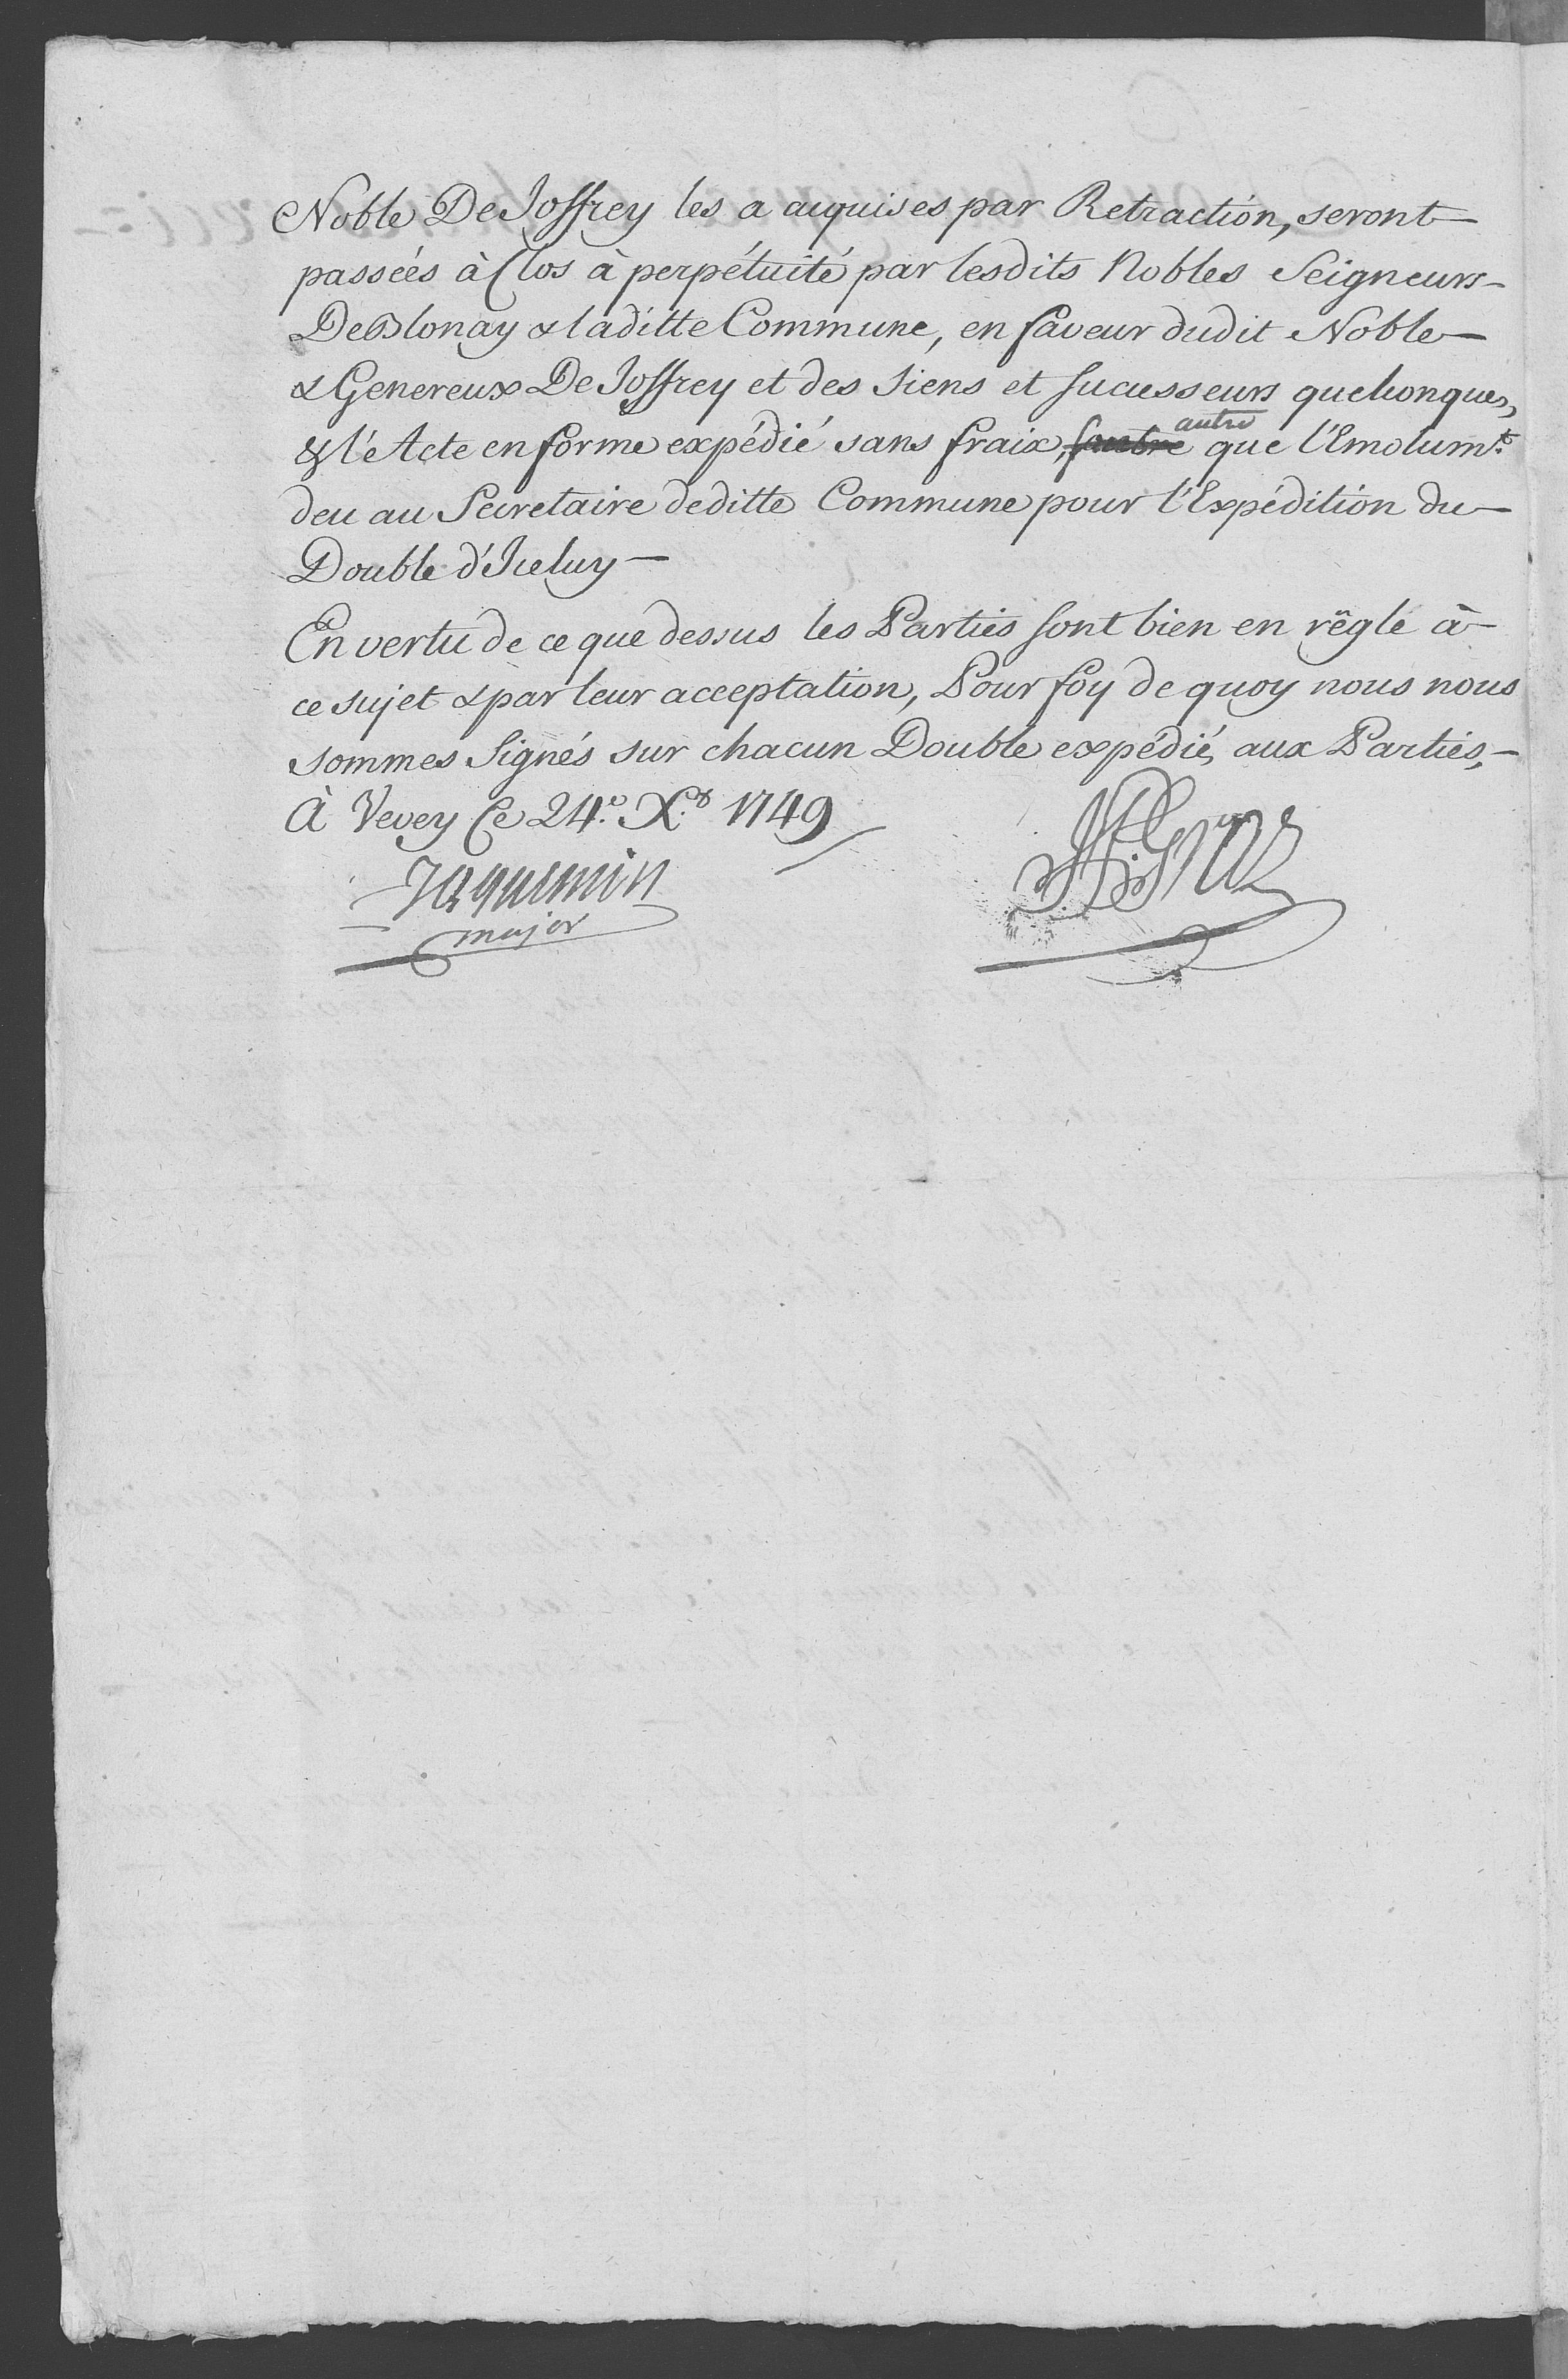 Noble De Joffrey les a acquises par Retraction, seront
passées à Clos à perpétuité par lesdits Nobles Seigneurs
De Blonay & laditte Commune, en faveur dudit Noble
& Genereux De Joffrey et des siens et successeurs quelconques,
& l'Acte en forme expédié sans fraix, autre que l'Emolum.t
deu au Secretaire deditte Commune pour l'Expédition du
Double d'Iceluy
En vertu de ce que dessus les Parties sont bien en règle à
ce sujet & par leur acceptation, Pour foy de quoy nous nous
sommes Signés sur chacun Double expédié aux Parties,
À Vevey Ce 24.e X.b 1749
Jaquemin
major